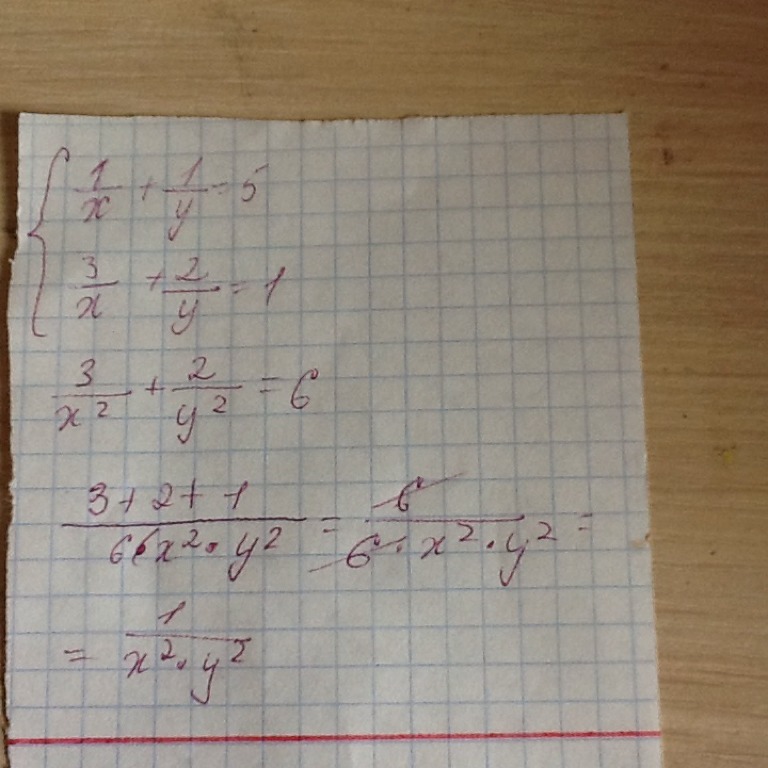 { 1/x + 1/y = 5
3/x + 2/y = 1
3/x² + 2/y² = 6
(3 + 2 + 1)/(6x² · y²) = 6/(6 · x² · y²) =
= 1/(x² · y²)